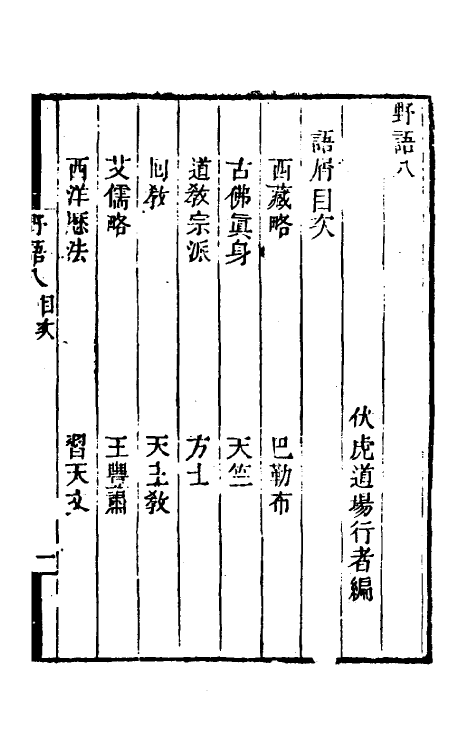 野語八
伏虎道場行者編
語屑目次
西藏略 巴勒布
古佛眞身 天竺
道教宗派 方士
回教 天主教
艾儒略 王輿肅
西洋厯法 習天文
野語八 目次 一